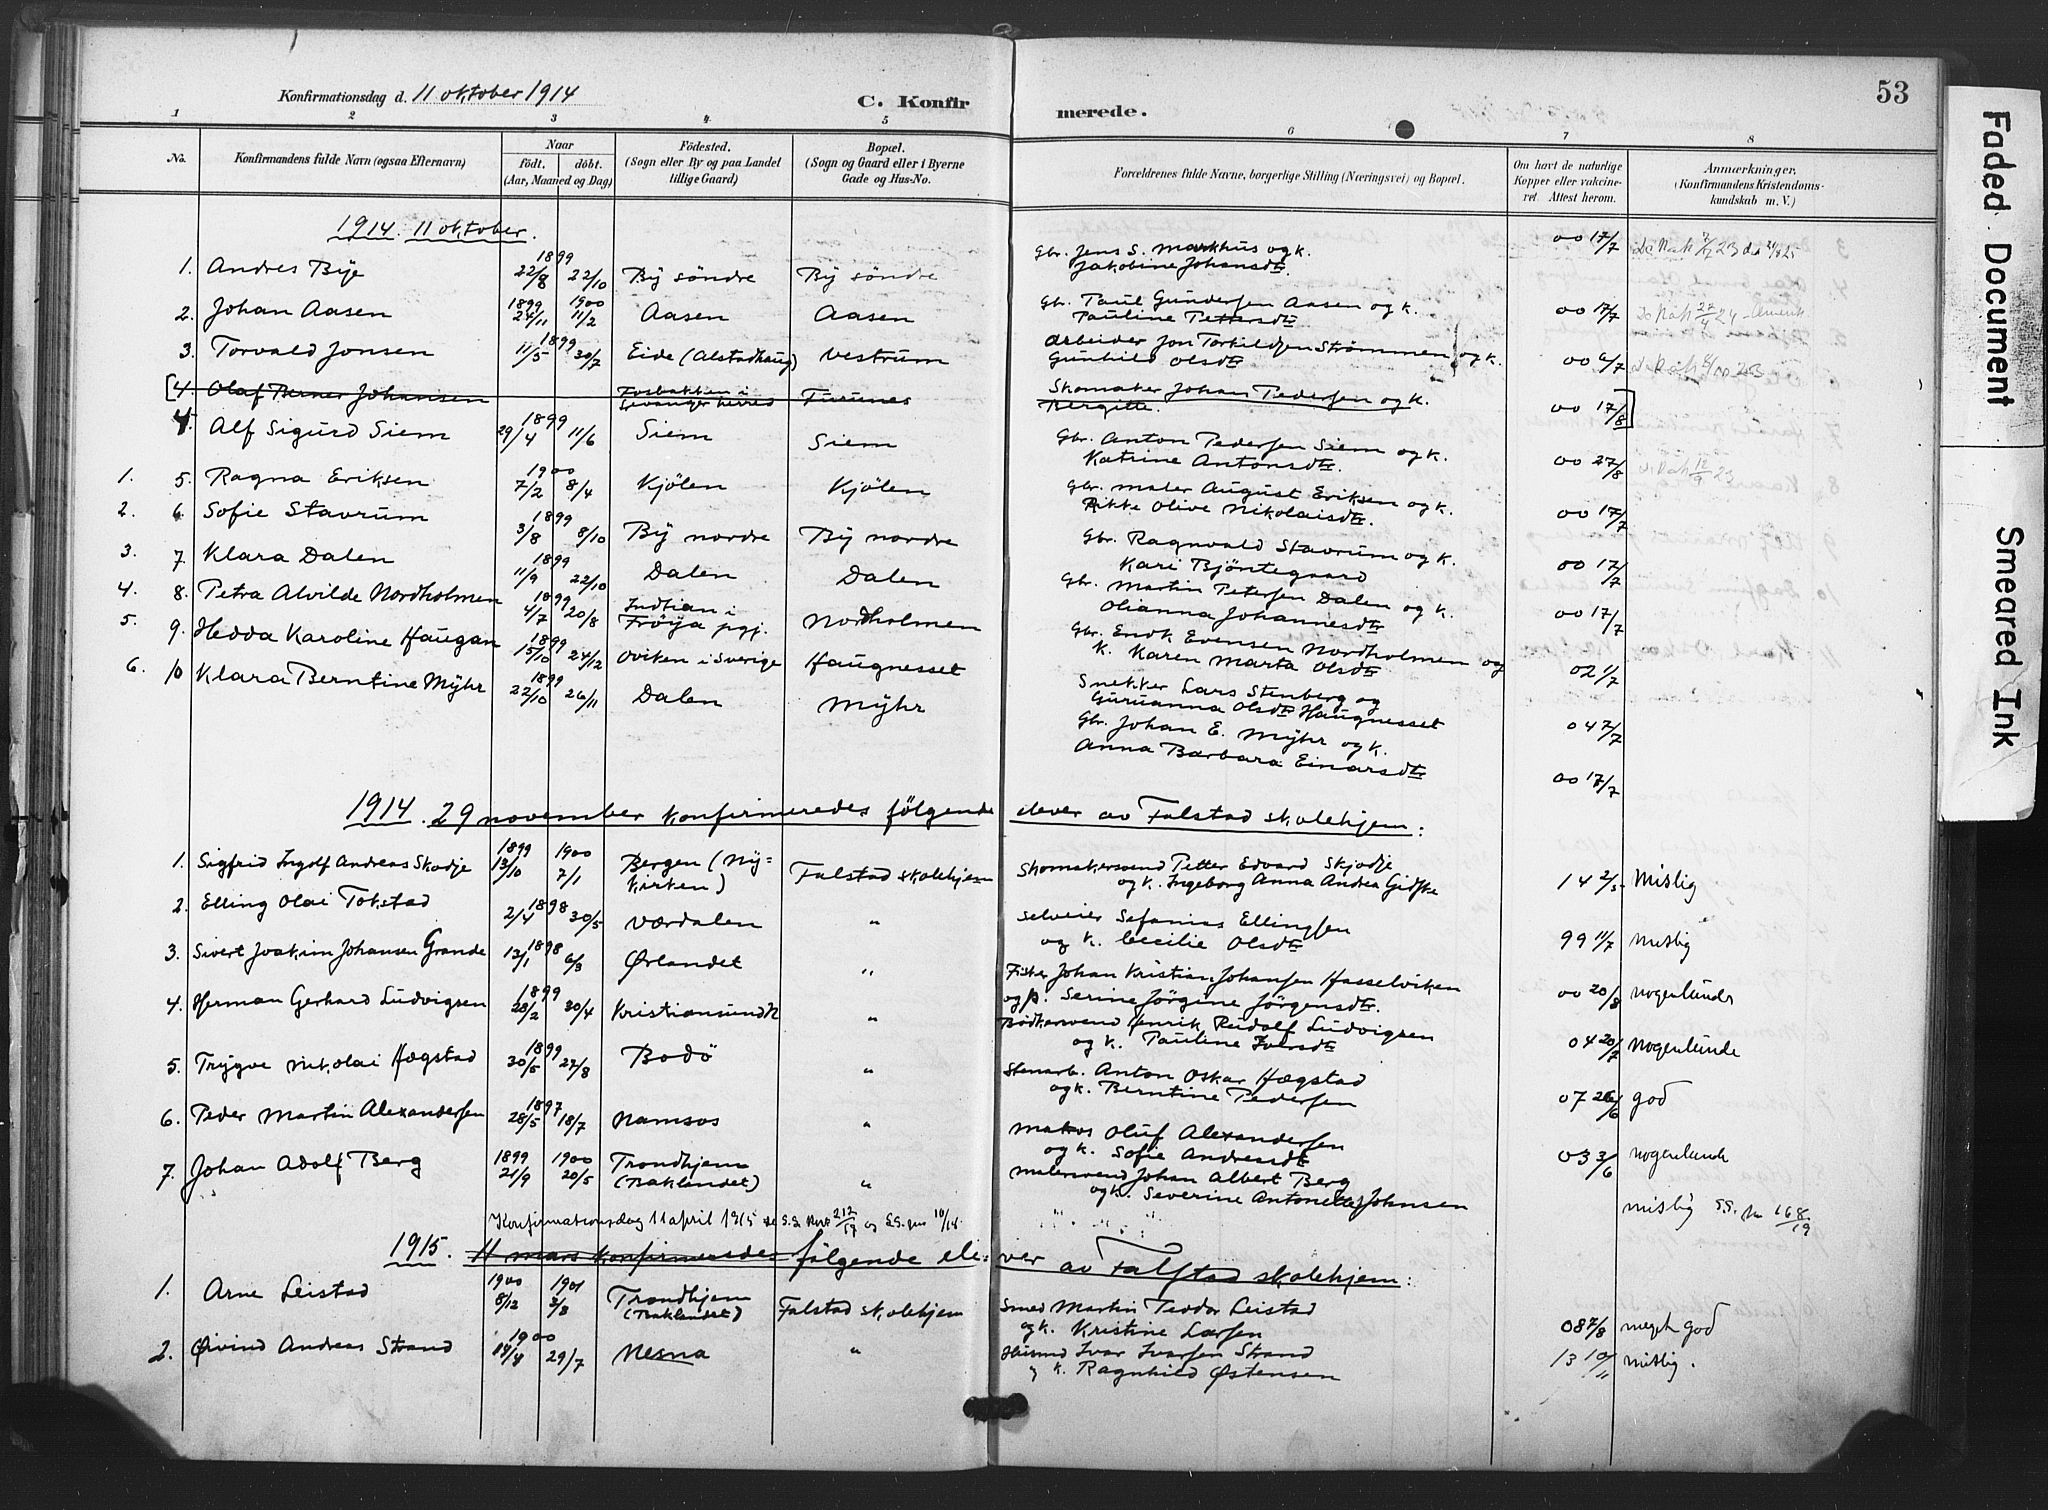 53
Konfirmationsdag d. 11 oktober 1914
C. Konfirmerede.
1 2 3 4 5 6 7 8
No.
Konfirmandens fulde Navn (ogsaa Efternavn)
Naar
født. døbt.
(Aar, Maaned og Dag)
Fødested.
(Sogn eller By og paa Landet
tillige Gaard)
Bopæl.
(Sogn og Gaard eller i Byerne
Gade og Hus-No.
Forældrenes fulde Navne, borgerlige Stilling (Næringsvei) og Bopæl.
Om havt de naturlige
Kopper eller vakcine-
ret. Attest herom.
Anmærkninger.
(Konfirmandens Kristendoms-
kundskab m. V.)
1914. 11 oktober.
1. Andres Bye 1899 22/8 22/10 By söndre By söndre Gbr. Jens S. Markhus og k. Jakobine Johansdtr. 00 17/7
2. Johan Aasen 1899 24/11 1900 11/2 Aasen Aasen Gbr. Paul Gundersen Aasen og k. Pauline Pettersdtr 00 17/7
3. Torvald Jonsen 1899 11/5 30/7 Eide (Alstadhaug) Vestrum Arbeider Jon Torkildsen Strømmen og k. Gunhild Olsdtr 00 6/7
[4. Olaf Berner Johansen Fosbakken i Levanger herred Furunes Skomaker Johan Pedersen og k. Bergitte. 00 17/8]
4. Alf Sigurd Siem 1899 29/4 11/6 Siem Siem Gbr. Anton Pedersen Siem og k. Katrine Antonsdtr. 00 27/8
1. 5. Ragna Eriksen 1900 7/2 8/4 Kjölen Kjölen Gbr. maler August Eriksen og k. Rikke Olive Nikolaisdtr. 00 17/7
2. 6 Sofie Stavrum 1899 3/8 8/10 By nordre By nordre Gbr. Ragnvald Stavrum og k. Kari Bjöntegaard 00 17/7
3. 7 Klara Dalen 1899 11/9 22/10 Dalen Dalen Gbr. Martin Petersen Dalen og k. Olianna Johannesdtr 00 17/7
4. 8. Petra Alvilde Nordholmen 1899 4/7 20/8 Indtian i Fröya pgj. Nordholmen Gbr. Endk Evensen Nordholmen og k. Karen Marta Olsdtr 02 1/7
5. 9. Hedda Karoline Haugan 1899 15/10 24/12 Oviken i Sverige Haugnesset Snekker Lars Stenberg og Guruanna Olsdtr Haugnesset 04 7/7
6. 10 Klara Berntine Myhr 1899 22/10 26/11 Dalen Myhr Gbr. Johan E. Myhr og k. Anna Barbara Einarsdtr 00 17/7
1914. 29 november konfirmeredes følgende elever av Falstad skolehjem:
1. Sigfrid Ingolf Andreas Skodje 1899 13/10 1900 7/1 Bergen (Ny-kirken) Falstad skolehjem Skomakersvend Petter Edvard Skjodje og k. Ingeborg Anna Andrea Gidske 14 2/5 Mislig
2. Elling Olai Tokstad 1898 2/4 30/5 Værdalen " Selveier Sefanias Ellingsen og k. Cecilie Olsdtr 99 11/7 Mislig
3. Sivert Joakim Johansen Grande 1898 12/1 6/3 Ørlandet " Fisker Johan Kristian Johansen Hasselviken og p. Serine Jörgine Jörgensdtr. 00 20/8 nogenlunde
4. Herman Gerhard Ludvigsen 1899 20/2 30/4 Kristiansund N " Bödkersvend Henrik Rudolf Ludvigsen og k. Pauline Iversdtr 04 20/7 nogenlunde
5. Trygve Nikolai Hægstad 1899 30/5 27/8 Bodö " Stenarb. Anton Oskar Hægstad og k. Berntine Pedersen 07 26/6 god
6. Peder Martin Alexandersen 1897 28/5 18/7 Namsos " Oluf Alexandersen og k. Sofie Andreasdtr 03 3/6 nogenlunde
7. Johan Adolf Berg 1899 21/9 1900 20/5 Trondhjem (Baklandet) " Malersvend Johan Albert Berg og k. Severine Antonette Johnsen mislig
Konfirmationsdag 11 april 1915
1915. 11 mars konfirmeredes følgende elever av Falstad skolehjem:
1. Arne Leistad 1900 8/12 1901 3/3 Trondhjem (Baklandet) Falstad skolehjem Smed Martin Teodor Leistad og k. Kristine Larsen 08 7/8 meget god
2. Øivind Andreas Strand 1900 14/4 29/7 Nesna " Husmd Ivar Ivarsen Strand og k. Ragnhild Østensen 13 10/11 mislig.
Faded Document
Smeared Ink